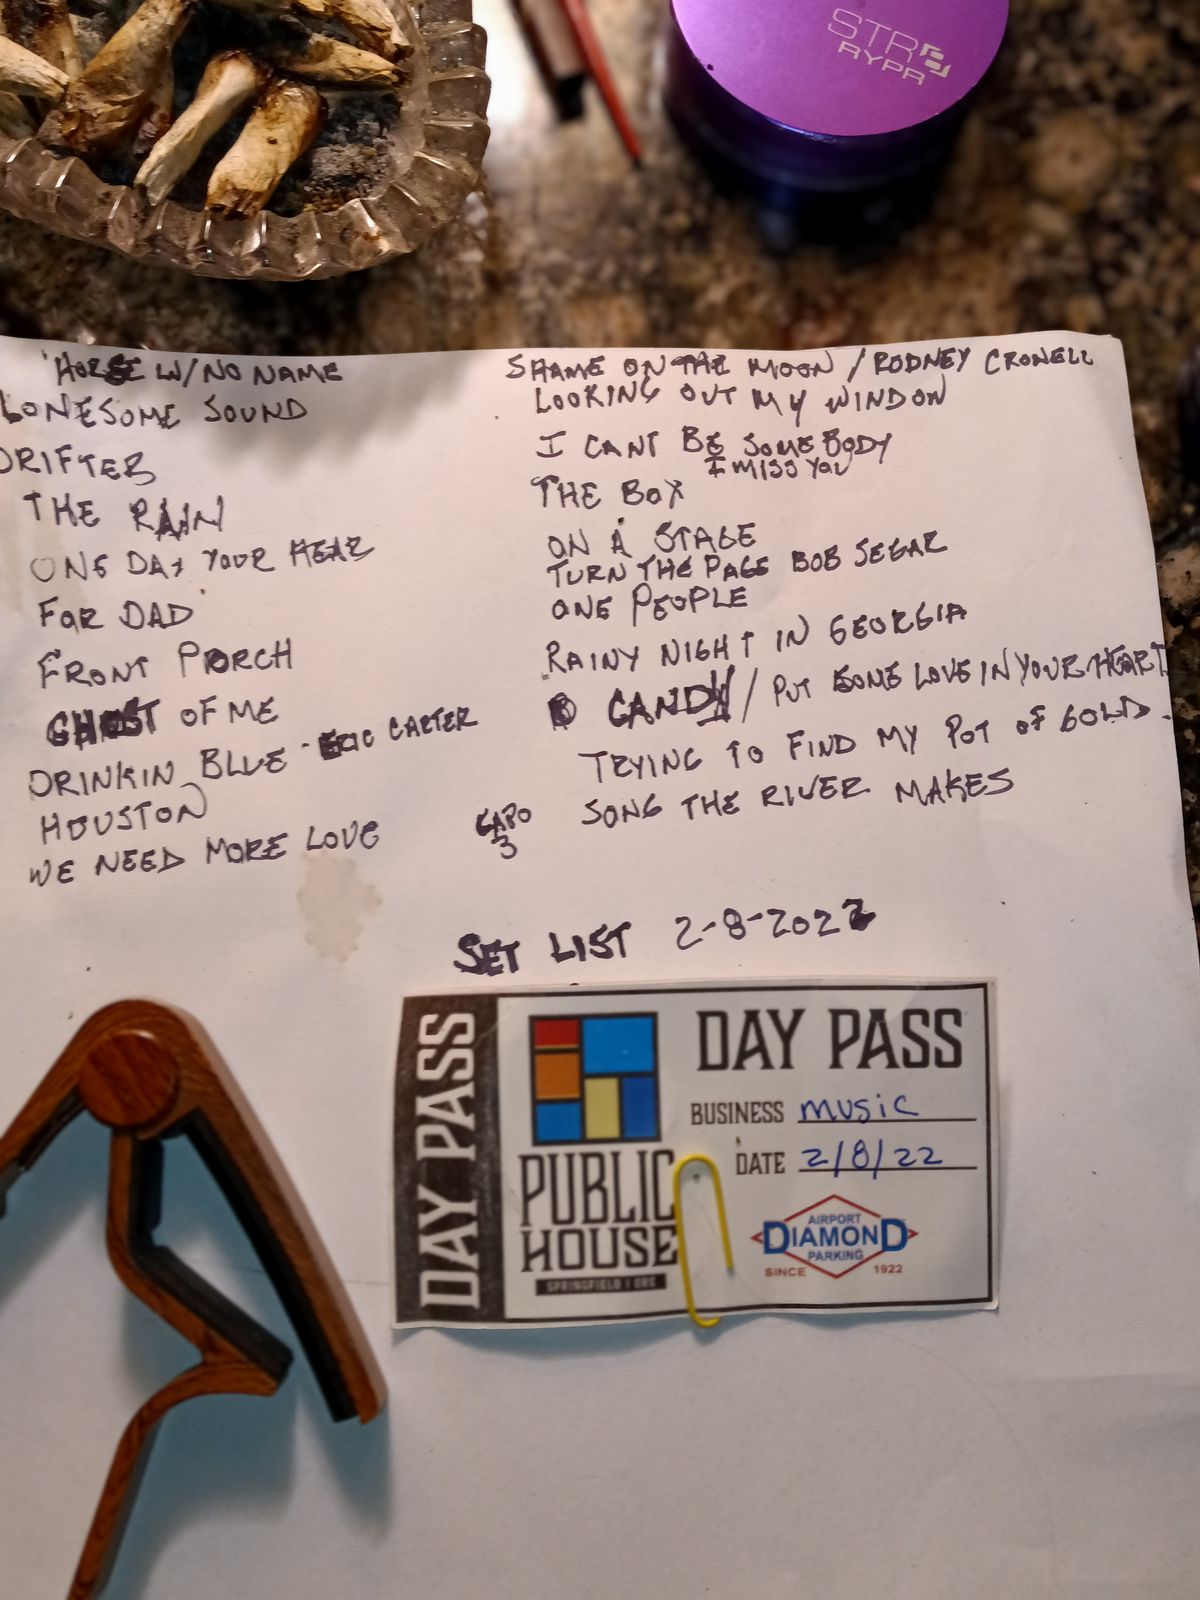 STR8
RYPR
HORSE W/NO NAME
LONESOME SOUND
DRIFTER
THE RAIN
ONE DAY YOUR HEAR
FOR DAD
FRONT PORCH
GHOST OF ME
DRINKIN BLUE - ERIC CARTER
HOUSTON
WE NEED MORE LOVE
SHAME ON THE MOON / RODNEY CROWELL
LOOKING OUT MY WINDOW
I CANT BE SOME BODY
I MISS YOU
THE BOX
ON A STAGE
TURN THE PAGE BOB SEGAR
ONE PEOPLE
RAINY NIGHT IN GEORGIA
CANDY / PUT SOME LOVE IN YOUR HEART
TRYING TO FIND MY POT OF GOLD.
CAPO
3
SONG THE RIVER MAKES
SET LIST 2-8-2022
DAY PASS
PUBLIC
HOUSE
SPRINGFIELD | ORE
DAY PASS
BUSINESS music
DATE 2/8/22
AIRPORT
DIAMOND
PARKING
SINCE 1922